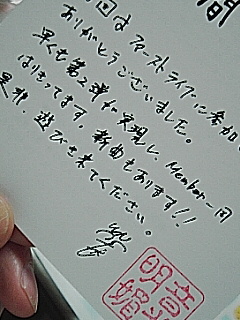 間
回は ファーストライブに参加
ありがとうございました。
早くも第2弾が実現し、Member一同
はりきってます。新曲もあります!!
是非、遊びに来てください。
明 音